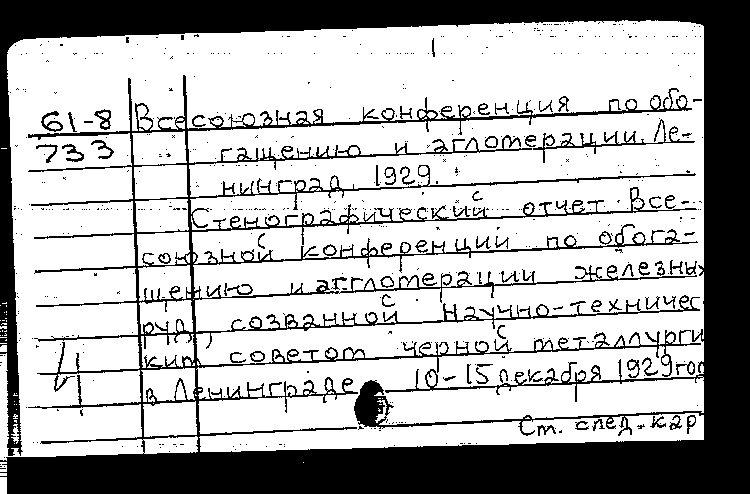 61-8 Всесоюзная конференция по обо-
733 гащению и агломерации. Ле-
нинград. 1929.
Стенографический отчет Все-
союзной конференции по обога-
щению и агломерации железны
руд, созванной Научно-техничес
ким советом черной металлурги
4 в Ленинграде 10-15 декабря 1929 год
См. след. кар